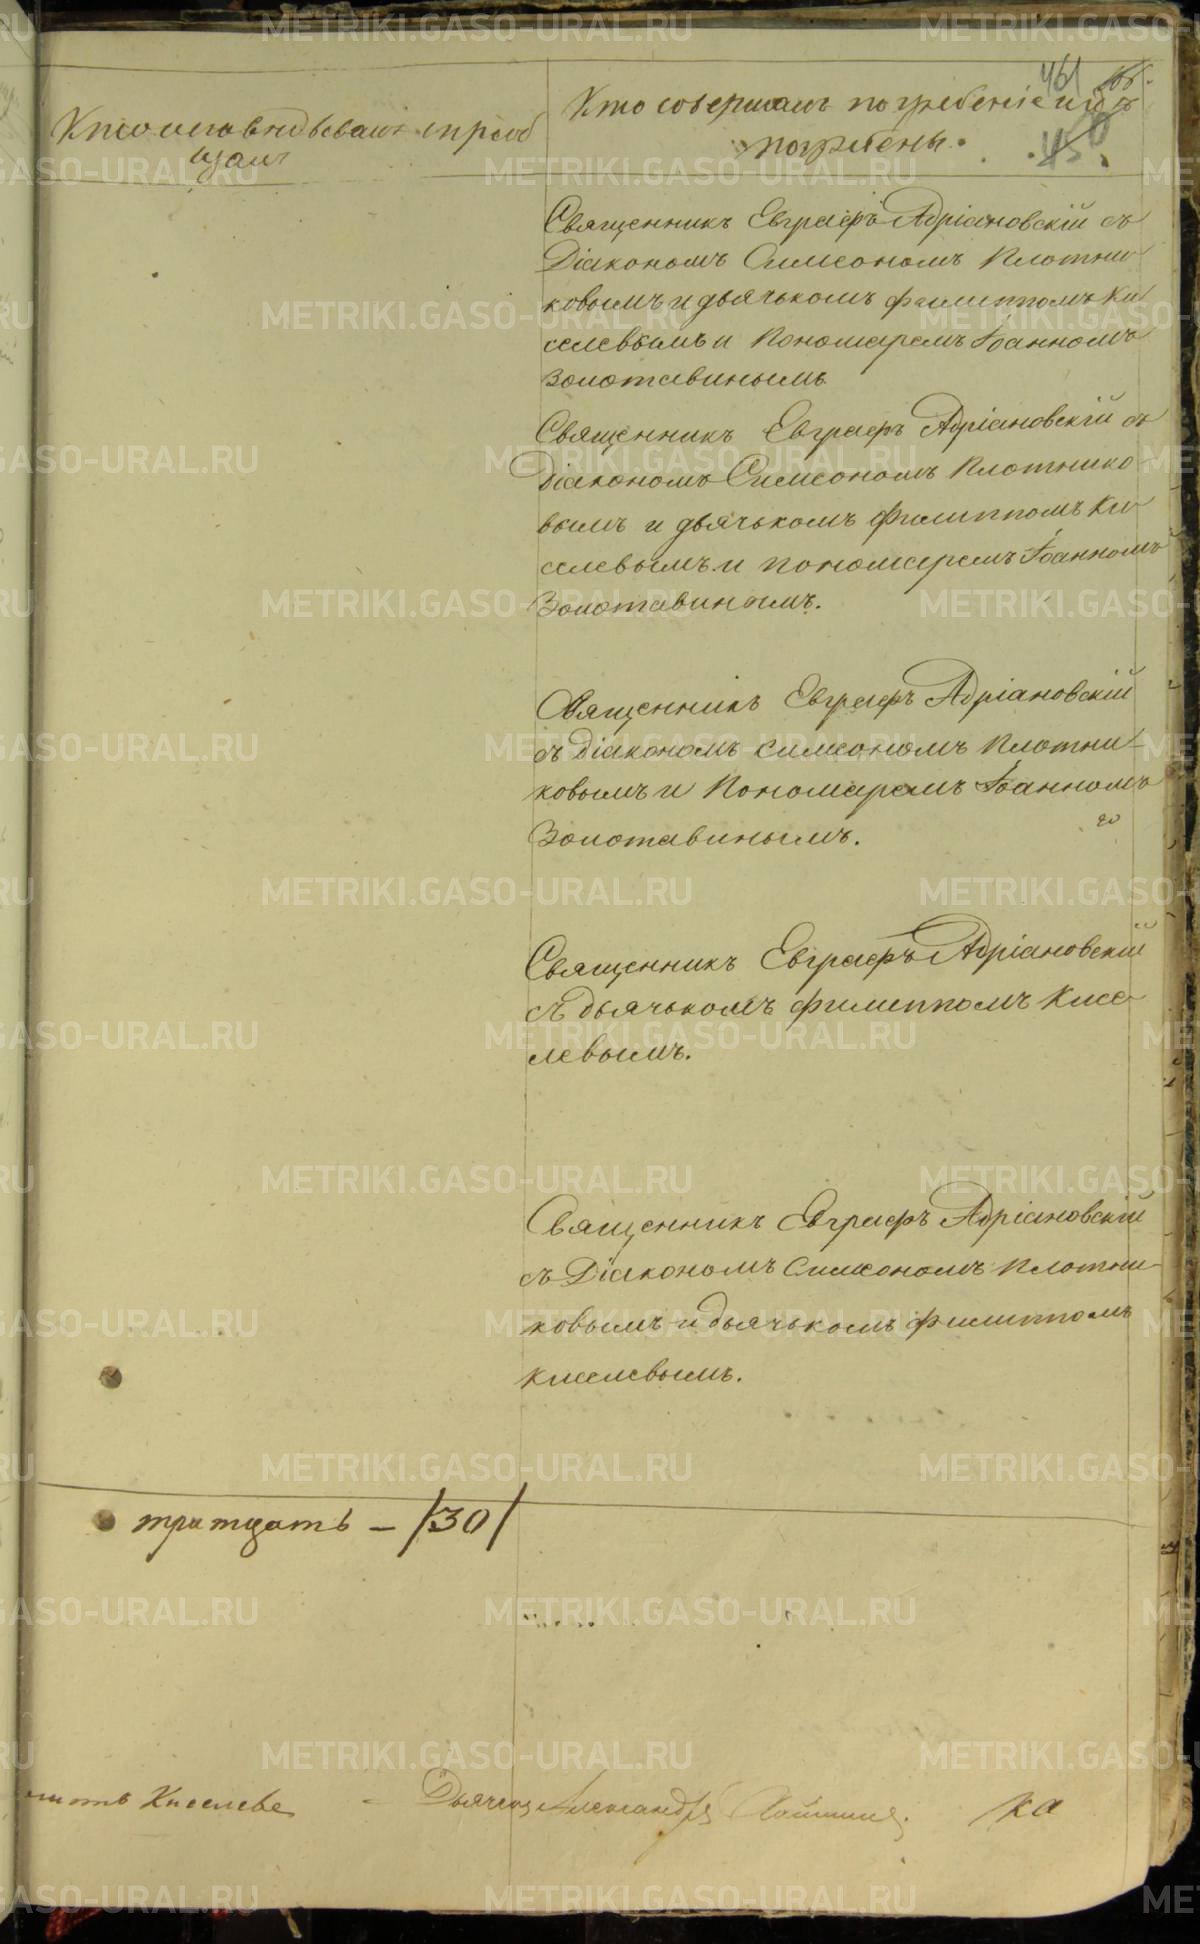 461
450
Кто исповѣдывалъ и пріоб
щалъ
Кто совершалъ погребеніе и гдѣ
погребены.
Священникъ Евграфъ Адріановскій съ
Діакономъ Симеономъ Плотни
ковымъ и дьячькомъ Филиппомъ Ки
селевымъ и Пономаремъ Іоанномъ
Золотавинымъ
Священникъ Евграфъ Адріановскій съ
Діакономъ Симеономъ Плотнико
вымъ и дьячькомъ Филиппомъ Ки
селевымъ и пономаремъ Іоанномъ
Золотавинымъ.
Священникъ Евграфъ Адріановскій
съ Діакономъ Симеономъ Плотни
ковымъ и Пономаремъ Іоанномъ
Золотавинымъ.
Священникъ Евграфъ Адріановскій
съ дьячькомъ Филиппомъ Кисе
левымъ.
Священникъ Евграфъ Адріановскій
съ Діакономъ Симеономъ Плотни
ковымъ и дьячькомъ Филиппомъ
Киселевымъ.
тритцать - /30/
Киселевъ - Дьячекъ Александръ ка
METRIKI.GASO-URAL.RU